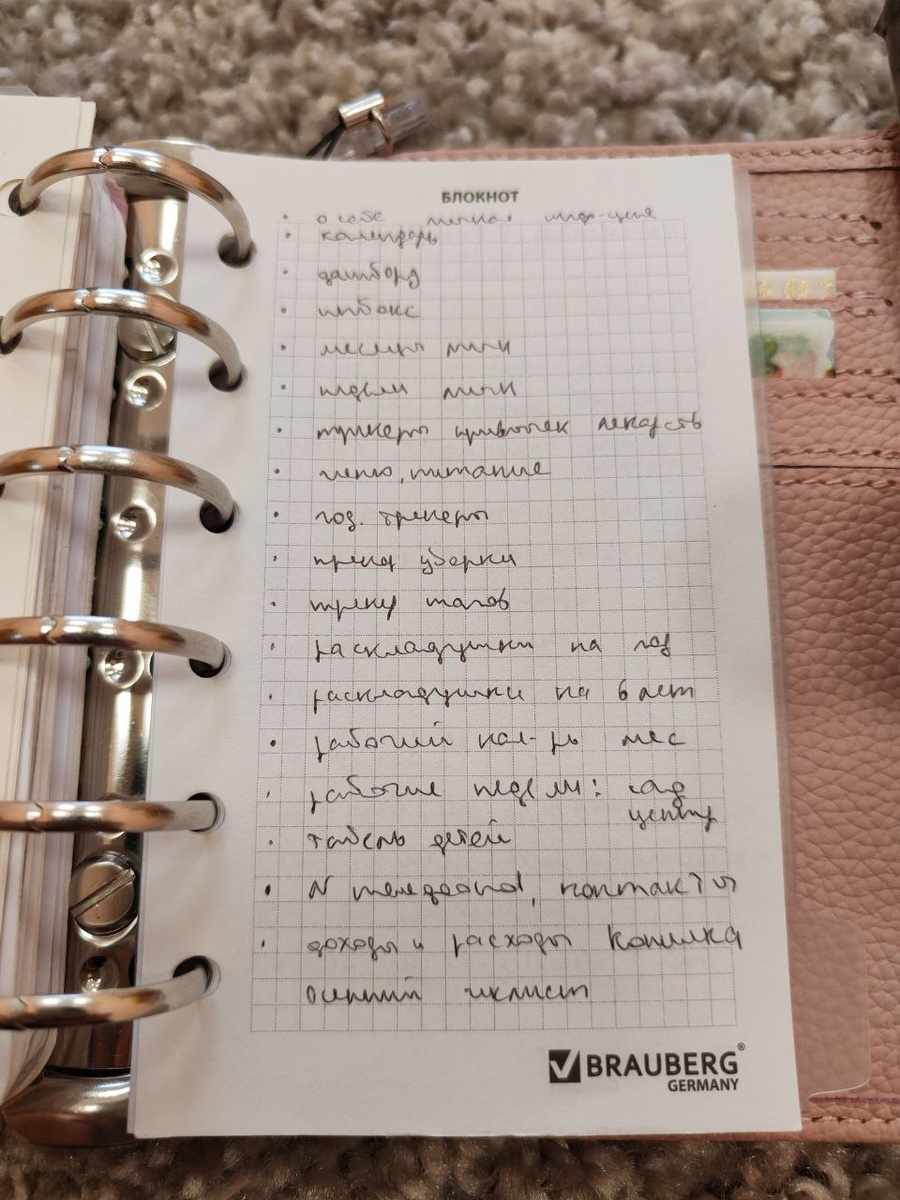 БЛОКНОТ
• о себе личная инф-ция
• календарь
• дашборд
• инбокс
• месяцы личн
• недели личн
• трекеры привычек лекарств
• меню, питание
• год. трекеры
• трекер уборки
• трекер шагов
• раскладушки на год
• раскладушки на 6 лет
• рабочий кал-рь мес
• рабочие недели: сад
центр
• табель детей
• N телефонов, контакты
• доходы и расходы копилка
осенний чеклист
BRAUBERG®
GERMANY